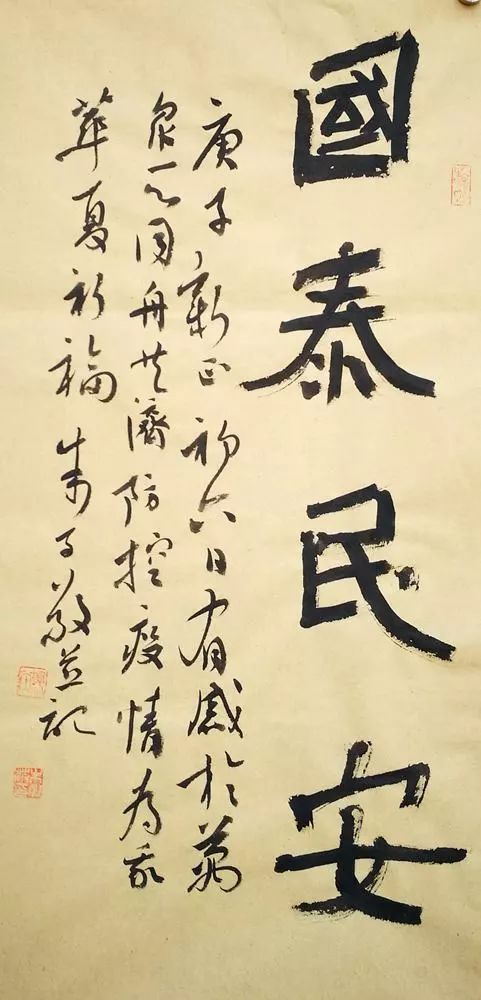 國泰民安
庚子新正初六日有感於萬
众一心同舟共濟防控疫情为我
華夏祈福 敬並記